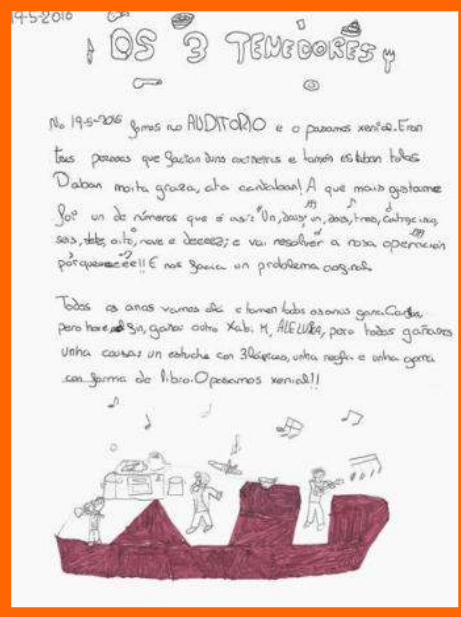 19-5-2016
OS 3 TENEDORES
No 19-5-2016 fomos no AUDITORIO e o pasamos xenial. Eran
tres persoas que facían duns cociñeiros e tamén estaban tolos
Daban moita graza, ata cantaban! A que mais gustoume
foi un de números que é así: "Un, dous, un, dous, tres, catro, cinco,
seis, sete, oito, nove e deceez; e vai resolver a nosa operación
porque !! E nos facía un problema orixinal.
Todos os anos vamos alá e tamén todos os anos gana Carlos,
pero hoxe fin, ganou outro Xabi M, ALELUIA, pero todos gañamos
unha cousas: un estuche con 3 lápices, unha regla e unha goma
con forma de libro. O pasamos xenial!!